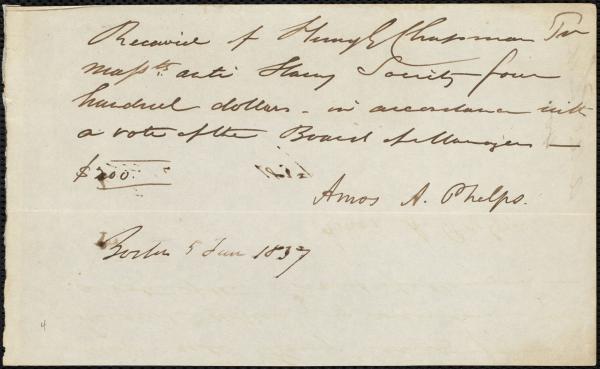 Received of Henry G. Chapman Tr
Massts. anti Slavery Society four
hundred dollars - in accordance with
a vote of the Board of Managers —
$400.
Amos A. Phelps.
Boston 5 Jan 1837
4